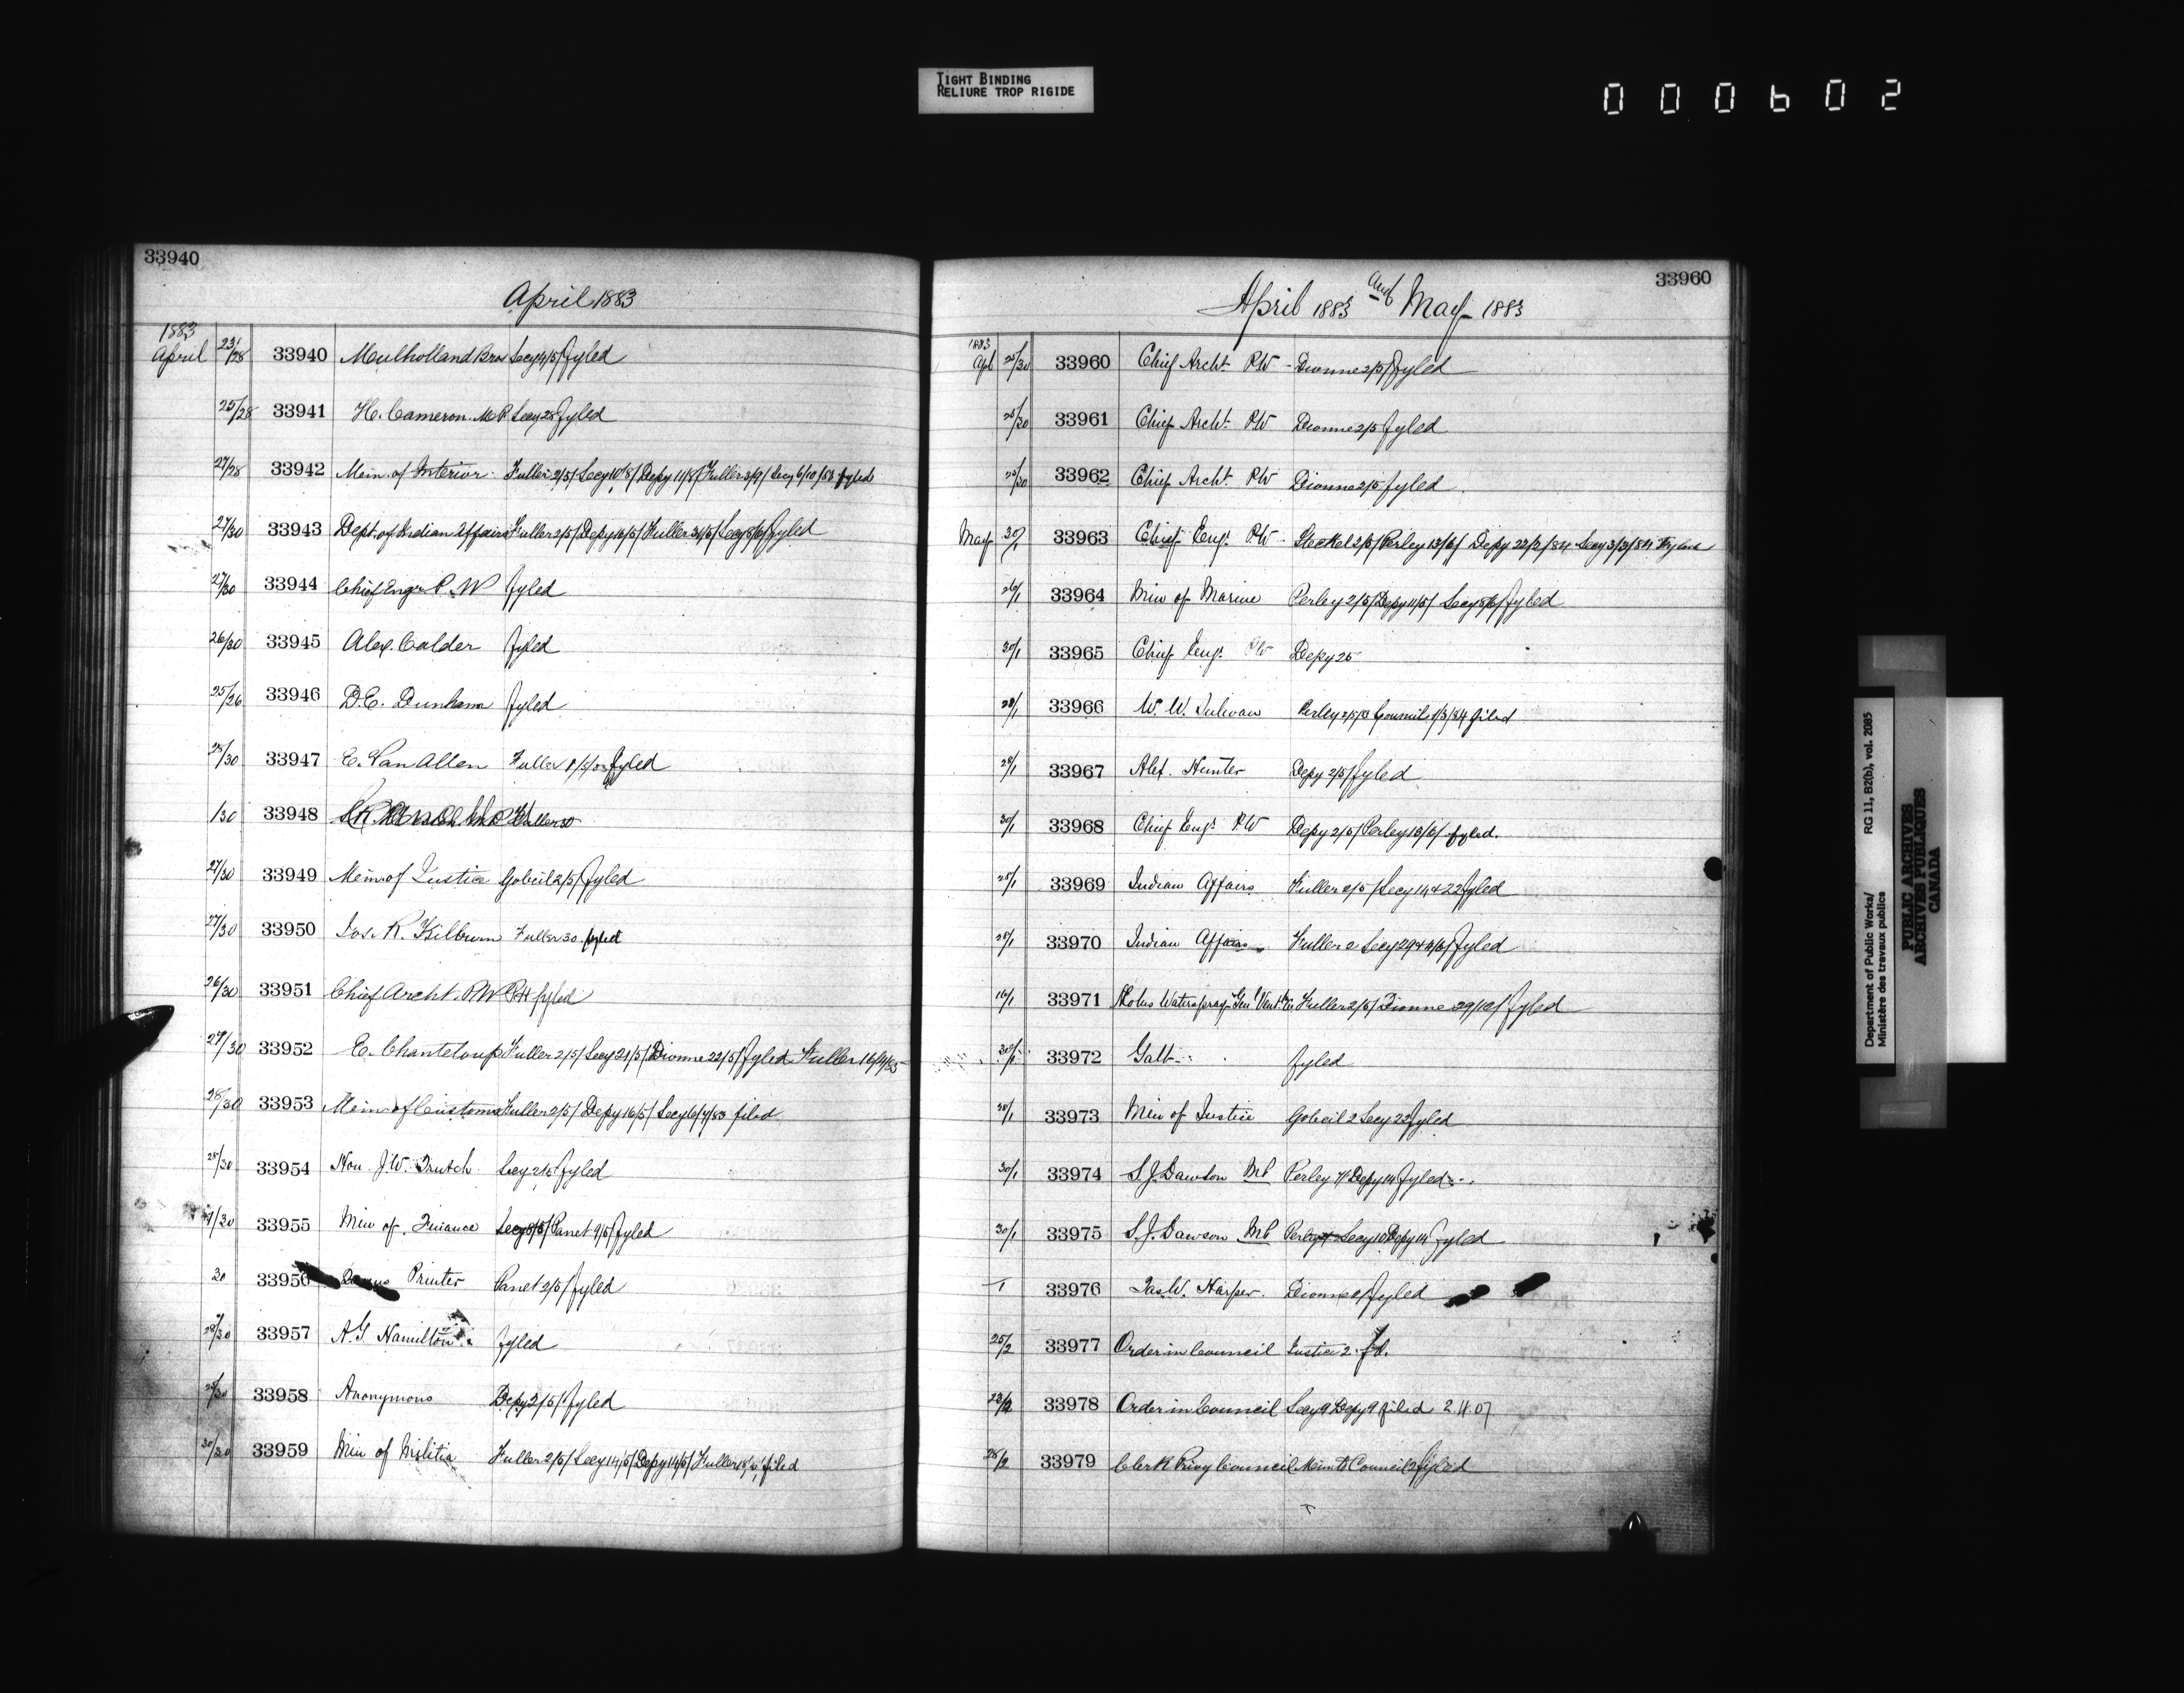 TIGHT BINDING
RELIURE TROP RIGIDE
000602
33940
April 1883
1883
April 23/28 33940 Mulholland Bros Secy 4/5/ fyled
25/28 33941 H. Cameron. M.P. Secy 28 fyled
27/28 33942 Min. of Interior Fuller 2/5/ Secy 10/8/ Depy 11/8/ Fuller 3/9/ Secy 6/10/83 fyled
27/30 33943 Dept. of Indian Affairs Fuller 2/5/ Depy 16/5/ Fuller 31/5/ Secy 8/6/ fyled
27/30 33944 Chief Engr P.W fyled
26/30 33945 Alex. Calder fyled
25/26 33946 D.E. Dunham fyled
28/30 33947 E. VanAllen Fuller fyled
/30 33948 Fuller 30
27/30 33949 Min of Justice Gobeil 2/5/ fyled
27/30 33950 Jos. R. Kilburn Fuller 30 fyled
26/30 33951 Chief Archt. P.W fyled
33952 E. Chanteloup Fuller 2/5/ Secy 21/5/ Dionne 22/5/ fyled Fuller
28/30 33953 Min of Customs Fuller 2/5/ Depy 16/5/ Secy 6/7/83 filed
28/30 33954 Hon. J.W. Trutch Secy 2/5 fyled
33955 Min of Finance Secy 8/5/ Panet 9/5/ fyled
30 33956 Printer Panet 2/5/ fyled
28/30 33957 A.G. Hamilton fyled
33958 Anonymous Depy 2/5/ fyled
30/30 33959 Min of Militia Fuller 2/5/ Secy 14/5/ Depy 14/5/ Fuller filed
33960
April 1883 and May 1883
1883
Apl 25/30 33960 Chief Archt P.W - Dionne 2/5/ fyled
33961 Chief Archt P.W Dionne 2/5 fyled
25/30 33962 Chief Archt P.W Dionne 2/5 fyled
May 30/1 33963 Chief Engr P.W - Steckel 2/5/ Perley 13/6/ Depy 22/2/84 Secy 3/3/84
26/1 33964 Min of Marine Perley 2/5/ Depy 11/5/ Secy 8/6/ fyled
30/1 33965 Chief Engr P.W Depy 25
28/1 33966 W. W. Sulivan Perley 2/5/3 Council 1/3/84 filed
28/1 33967 Alex. Hunter Depy 2/5/ fyled
30/1 33968 Chief Engr P.W Depy 2/5/ Perley 13/6/ fyled.
28/1 33969 Indian Affairs Fuller 2/5/ Secy 14 & 22 fyled
28/1 33970 Indian Affairs Fuller 2 Secy fyled
16/1 33971 Fuller 2/5/ Dionne 29/12/ fyled
33972 Galt fyled
30/1 33973 Min of Justice Gobeil 2 Secy 22 fyled
30/1 33974 S.J. Dawson M.P Perley Depy 14 fyled
30/1 33975 S.J. Dawson M.P Secy 10 Depy 14 fyled
1 33976 Jas. W. Harper Dionne fyled
25/2 33977 Order in Council Justice 2. fd.
33978 Order in Council Secy 9 Depy 9 filed 2.4.07
28/2 33979 Clerk Privy Council Memo to Council fyled
Department of Public Works/ RG 11, B2(b), vol. 2085
Ministère des travaux publics
PUBLIC ARCHIVES
ARCHIVES PUBLIQUES
CANADA